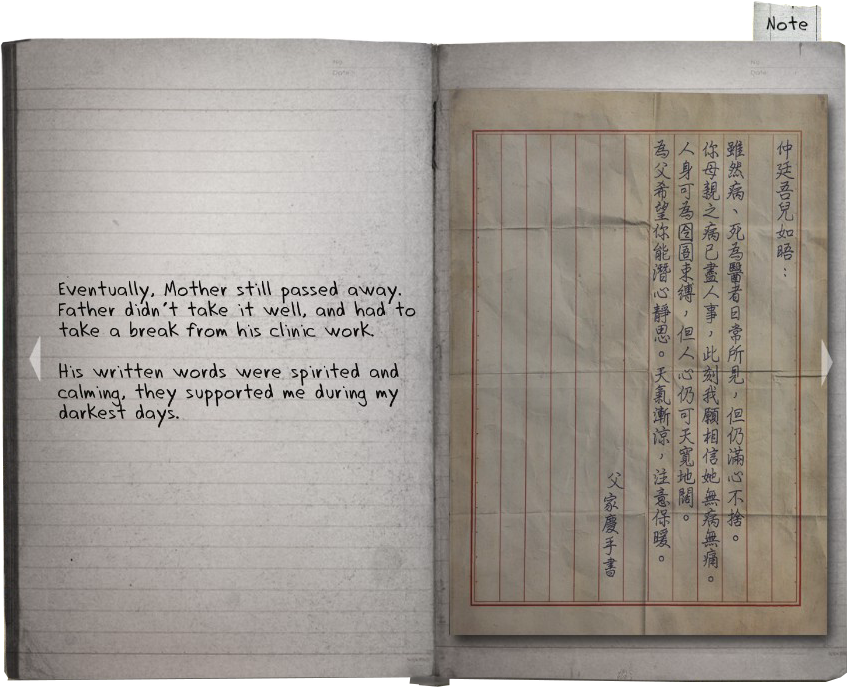 Note
No.
Date
Eventually, Mother still passed away.
Father didn't take it well, and had to
take a break from his clinic work.
His written words were spirited and
calming, they supported me during my
darkest days.
No.
Date
仲廷吾兒如晤：
雖然病、死為醫者日常所見，但仍滿心不捨。
你母親之病已盡人事，此刻我願相信她無病無痛。
人身可為囹圄束縛，但人心仍可天寬地闊。
為父希望你能潛心靜思。天氣漸涼，注意保暖。
父家慶手書